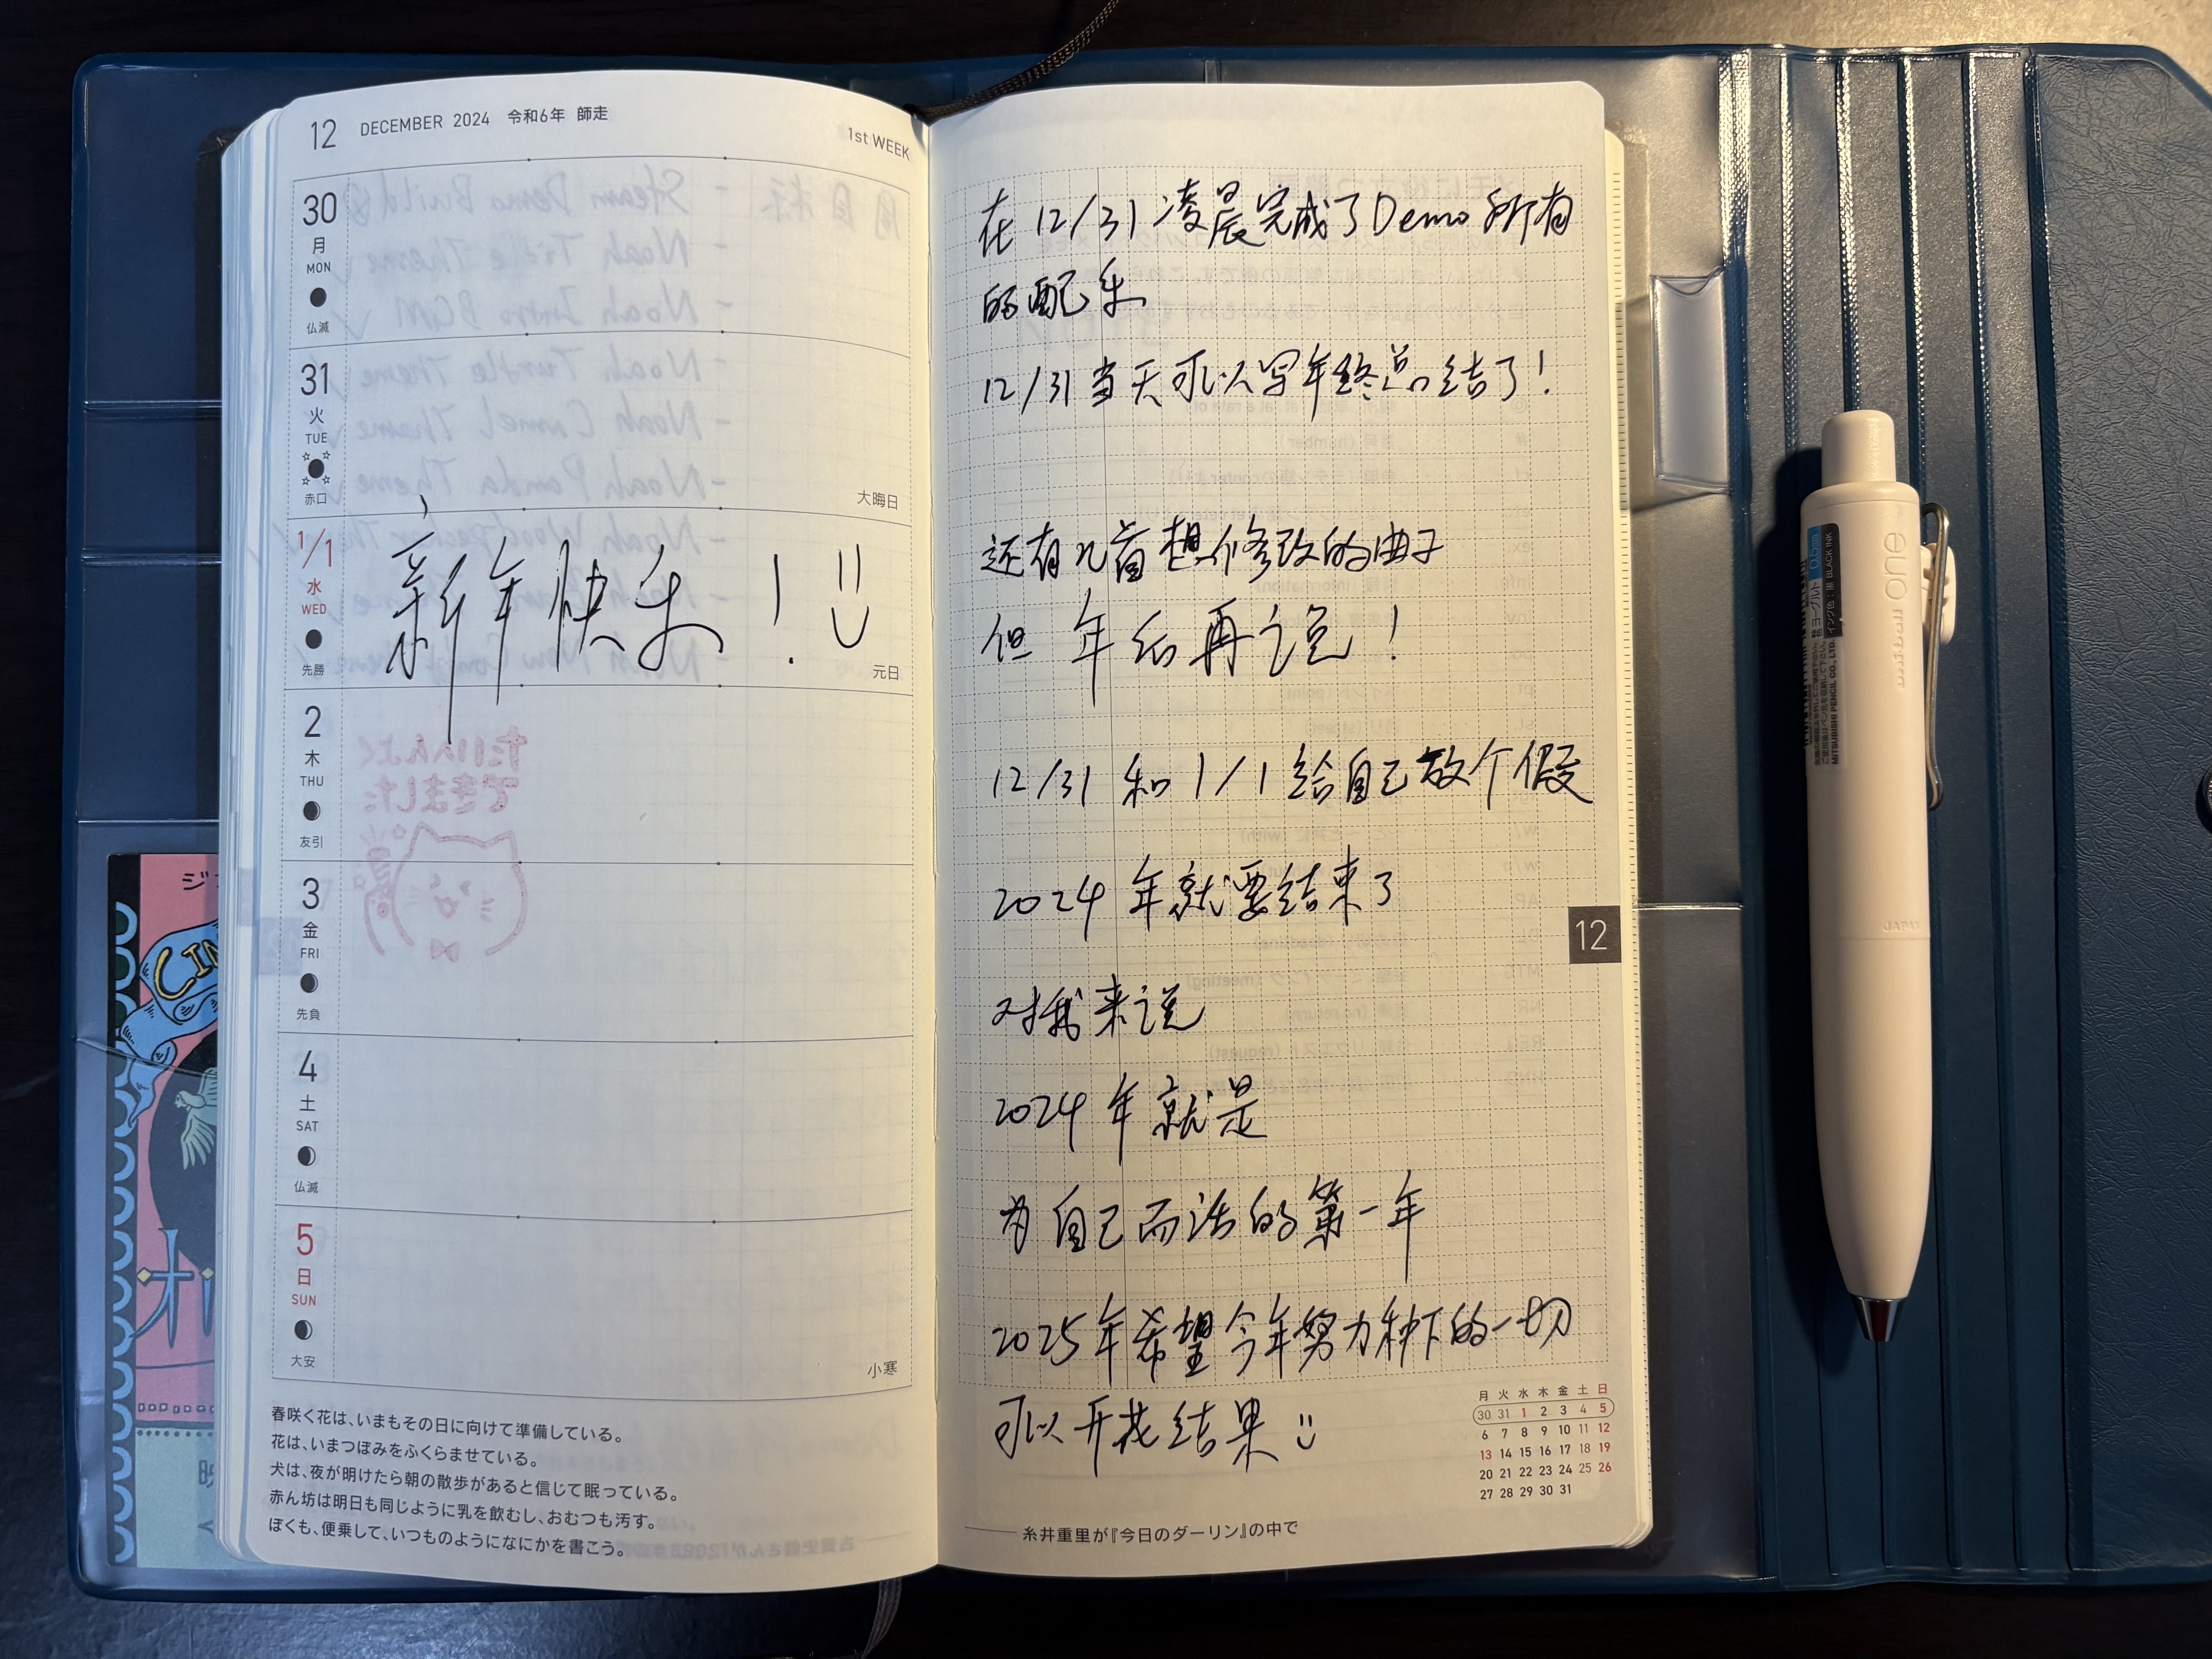 12 DECEMBER 2024 令和6年 師走
1st WEEK
30
月
MON
仏滅
31
火
TUE
赤口
大晦日
1/1
水
WED
先勝
新年快乐！
元日
2
木
THU
友引
3
金
FRI
先負
4
土
SAT
仏滅
5
日
SUN
大安
小寒
春咲く花は、いまもその日に向けて準備している。
花は、いまつぼみをふくらませている。
犬は、夜が明けたら朝の散歩があると信じて眠っている。
赤ん坊は明日も同じように乳を飲むし、おむつも汚す。
ぼくも、便乗して、いつものようになにかを書こう。
在12/31凌晨完成了Demo所有
的配乐
12/31当天可以写年终总结了！
还有几首想修改的曲子
但年后再说！
12/31和1/1给自己放个假
2024年就要结束了
对我来说
2024年就是
为自己而活的第一年
2025年希望今年努力种下的一切
可以开花结果
12
月 火 水 木 金 土 日
30 31 1 2 3 4 5
6 7 8 9 10 11 12
13 14 15 16 17 18 19
20 21 22 23 24 25 26
27 28 29 30 31
糸井重里が『今日のダーリン』の中で
uni
0.5mm
インク色：黒 BLACK INK
MITSUBISHI PENCIL CO., LTD.
JAPAN
たいへんよく
できました
- Steam Demo Build
- Noah Title Theme
- Noah Intro BGM
- Noah Turtle Theme
- Noah Camel Theme
- Noah Panda Theme